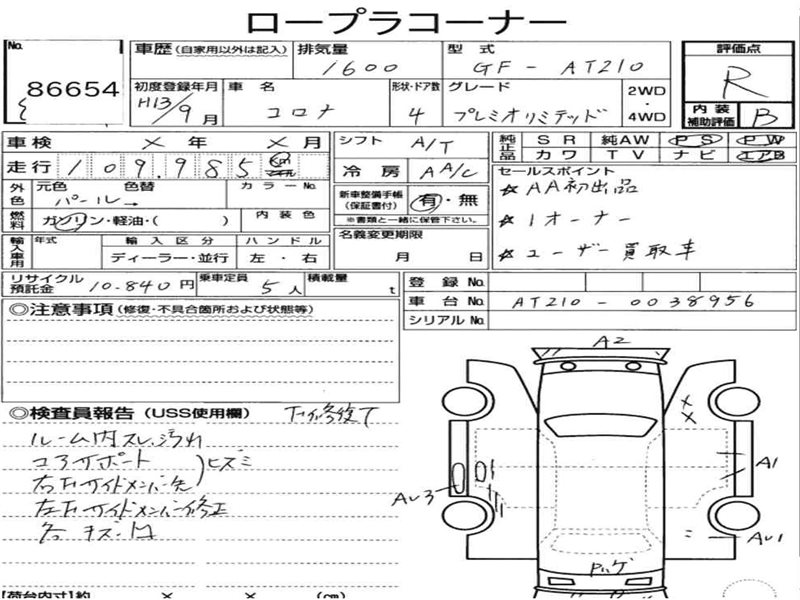 ロープラコーナー
No. 86654
車歴 (自家用以外は記入) 排気量 1600 型式 GF-AT210 評価点 R
初度登録年月 H13/9月 車名 コロナ 形状・ドア数 4 グレード プレミオリミテッド 2WD・4WD 内装補助評価 B
車検 × 年 × 月 シフト A/T 純正品 SR 純AW PS PW
走行 109,985 km 冷房 AA/C カワ TV ナビ エアB
外色 元色 パール→ 色替 カラーNo. 新車整備手帳(保証書付) 有・無 セールスポイント
☆AA初出品
燃料 ガソリン・軽油・( ) 内装色 ※書類と一緒に保管下さい。
☆1オーナー
輸入車用 年式 輸入区分 ハンドル 名義変更期限
ディーラー・並行 左・右 月 日
☆ユーザー買取車
リサイクル預託金 10.840円 乗車定員 5人 積載量 t 登録No.
車台No. AT210-0038956
シリアルNo.
◎注意事項 (修復・不具合箇所および状態等)
A2
◎検査員報告 (USS使用欄) 下廻り修復て
ルーム内スレ汚れ
コアサポート
右左サイドメンバー先 )ヒズミ
左右サイドメンバー修正
各キズ・凹
×
×
A1
AU3
AU1
Pハゲ
【荷台内寸】約 × × (cm)